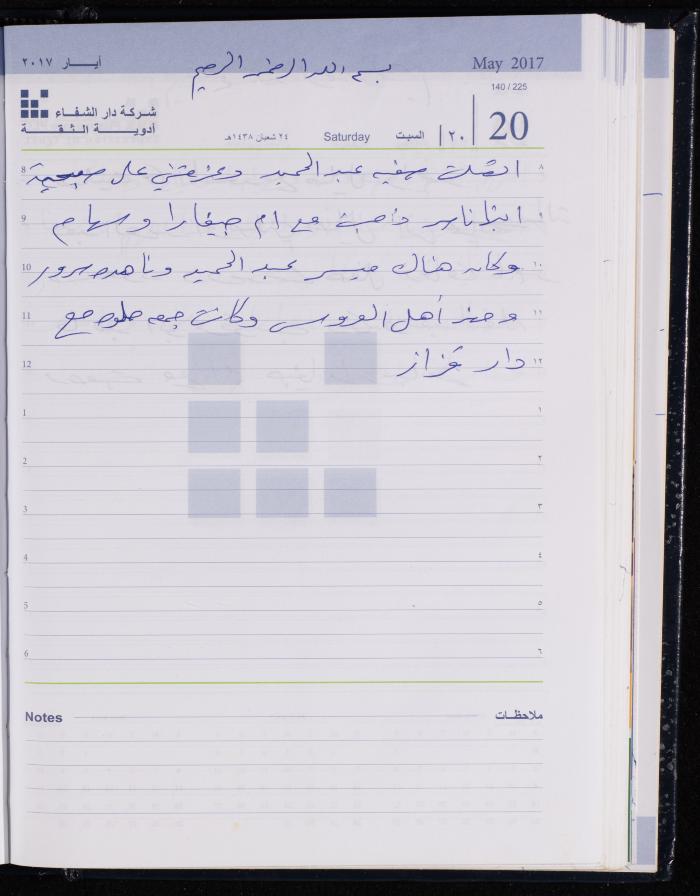 أيـــار ٢٠١٧
بسم الله الرحمن الرحيم
May 2017
140 / 225
شركة دار الشفاء
أدويـــة الـثـقـــة
٢٤ شعبان ١٤٣٨هـ
Saturday
السبت
٢٠
20
8 اتصلت صفيه عبد الحميد وعزمتني على صبحية ٨
9 ذاهبة مع ام جيفارا وسهام ٩
10 وكان هناك ميسر عبد الحميد وناهده سرور ١٠
11 أهل العروس وكانت جمعه حلوه مع ١١
12 دار قزاز ١٢
1 ١
2 ٢
3 ٣
4 ٤
5 ٥
6 ٦
Notes ملاحظات